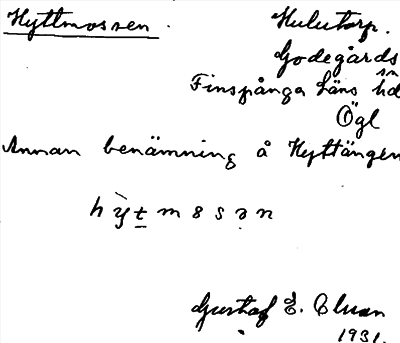 Hyttmossen.
Hulutorp.
Godegårds sn
Finspånga läns hd
Ögl
Annan benämning å Hyttängen
hỳt̲mosən
Gustaf E.
1931.